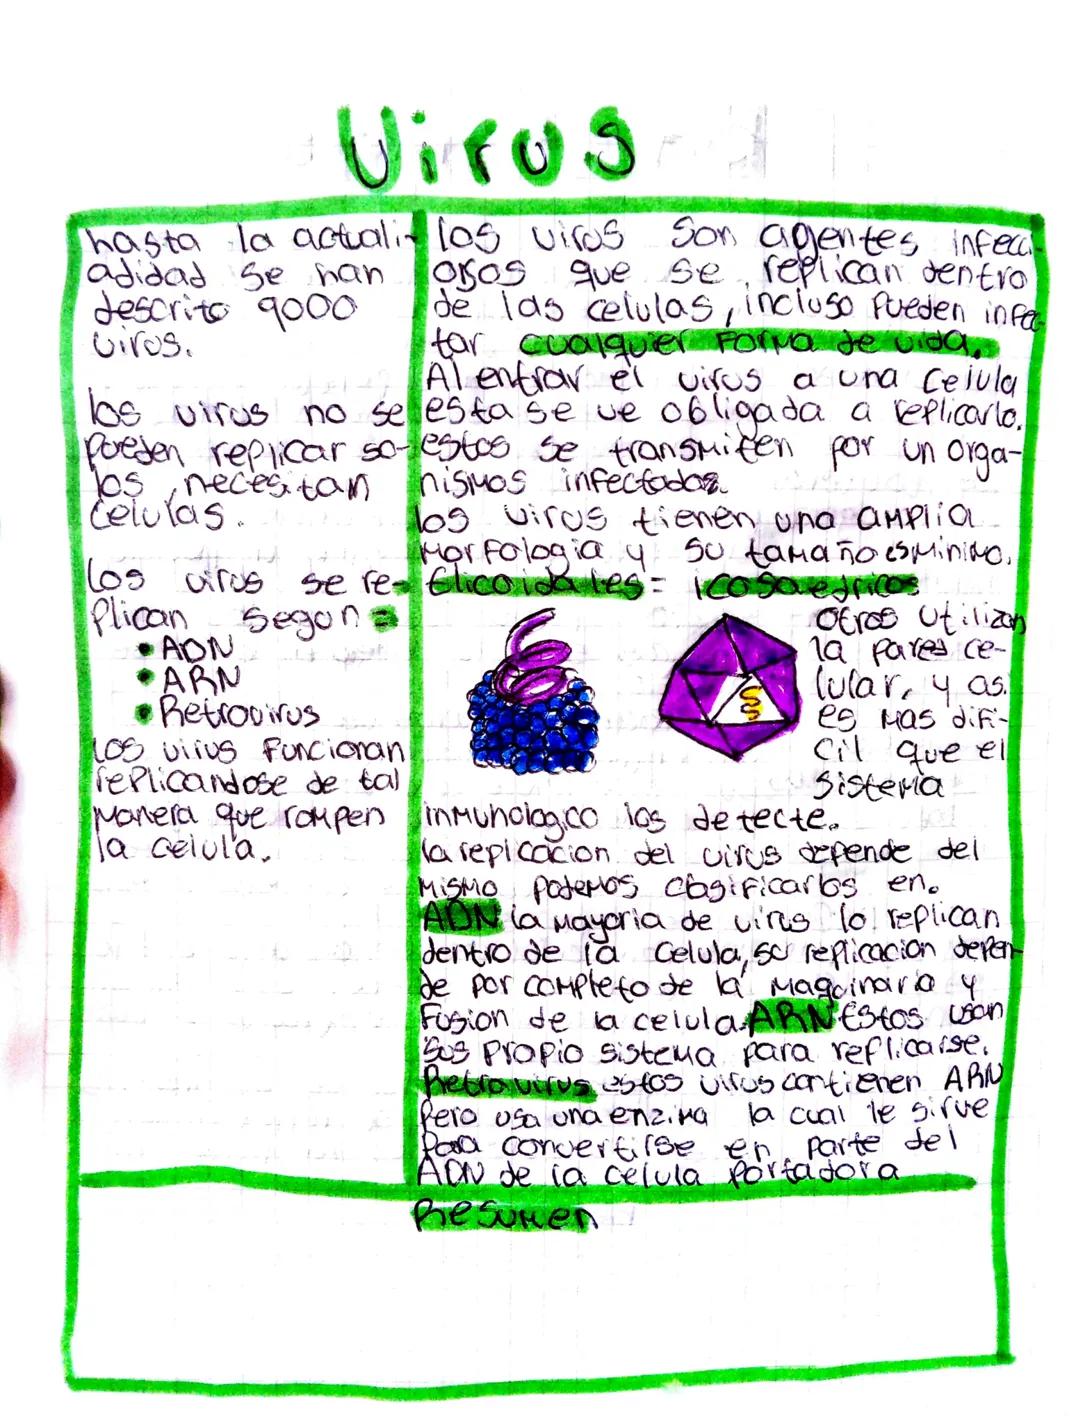 Virus
hasta la actuali-
adidad se han
descrito 9000
virus.
los virus no se
pueden replicar so-
los, necesitan
celulas.
los virus se re-
plican segun =
• ADN
• ARN
• Retrovirus
los virus funcionan
replicandose de tal
manera que rompen
la celula.
los virus son agentes infecci-
osos que se replican dentro
de las celulas, incluso pueden infec-
tar cualquier forma de vida.
Al entrar el virus a una celula
esta se ve obligada a replicarlo.
estos se transmiten por un orga-
nismos infectados.
los virus tienen una amplia
morfologia y su tamaño es minimo.
Elicoidales = icosaedricos
otros utilizan
la pared ce-
lular, y asi
es mas difi-
cil que el
sistema
inmunologico los detecte.
la replicacion del virus depende del
mismo podemos clasificarlos en.
ADN la mayoria de virus lo replican
dentro de la celula, su replicacion depen-
de por completo de la maquinaria y
fusion de la celula. ARN Estos usan
sus propio sistema para replicarse.
Retrovirus estos virus contienen ARN
pero usa una enzima la cual le sirve
para convertirse en parte del
ADN de la celula portadora
Resumen